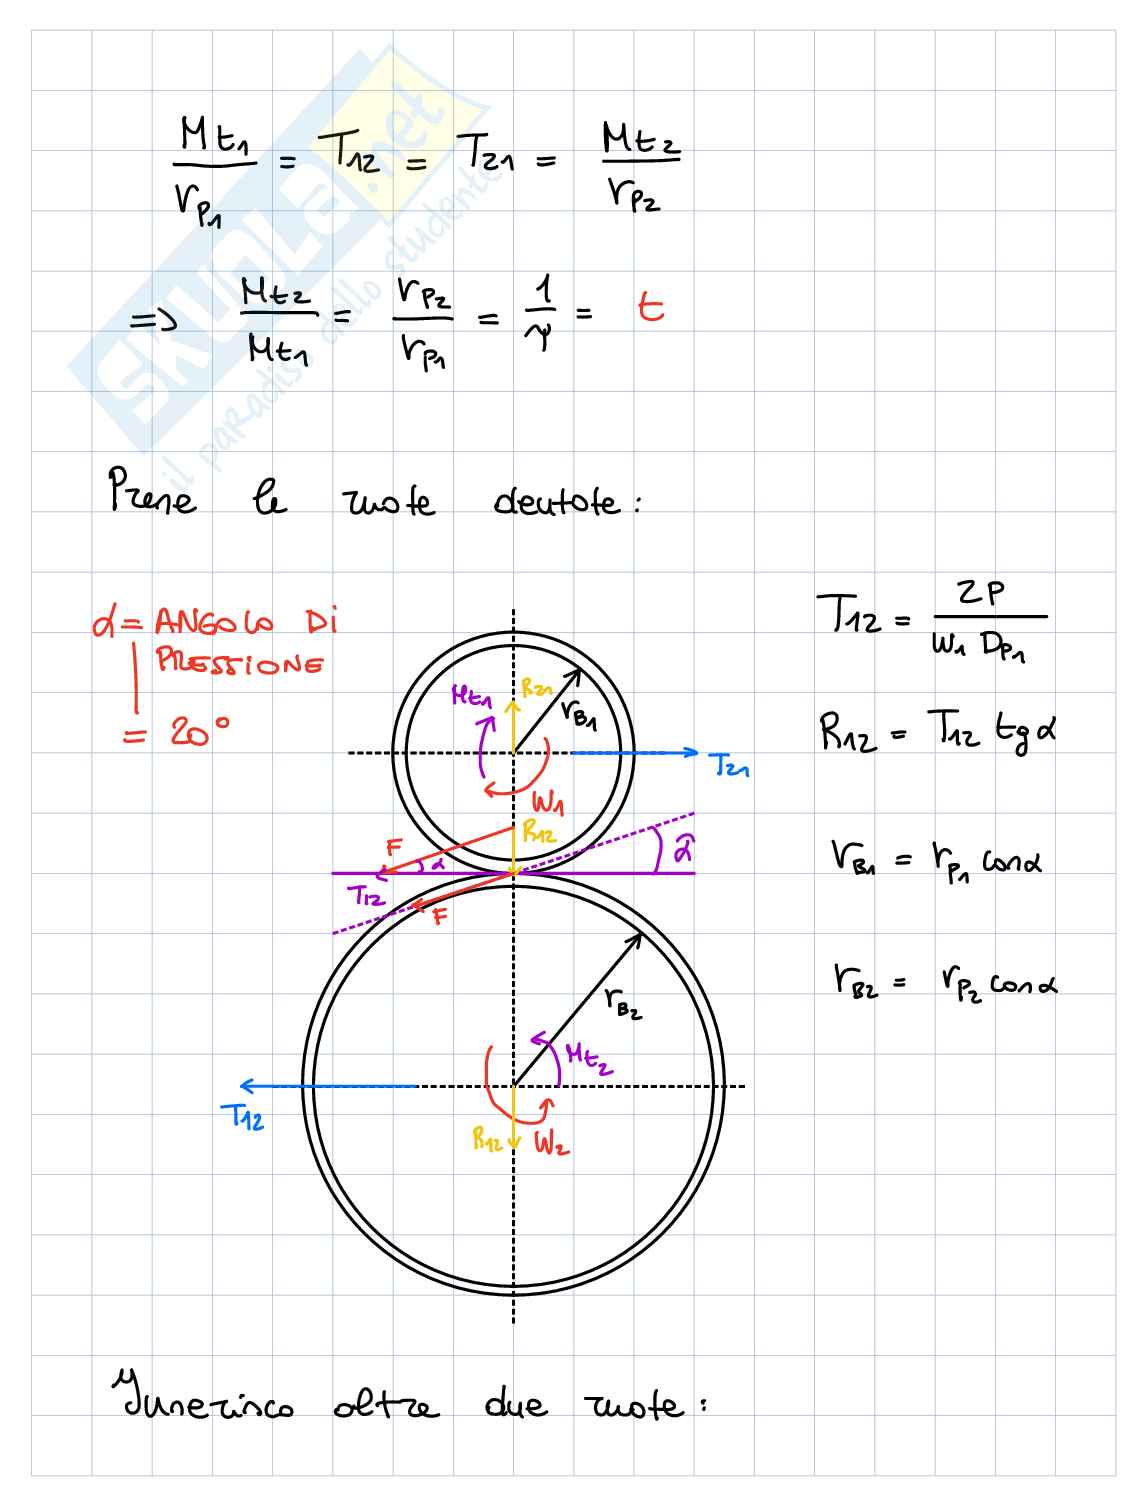 Mt1 / rP1 = T12 = T21 = Mt2 / rP2
=> Mt2 / Mt1 = rP2 / rP1 = 1 / τ = t
SKUOLA.net
il paradiso dello studente
Prese le ruote dentate:
α = ANGOLO DI
PRESSIONE
= 20°
T12 = 2P / W1 DP1
R12 = T12 tgα
rB1 = rP1 cosα
rB2 = rP2 cosα
Mt1
R21
rB1
T21
W1
R12
F
α
α
T12
F
rB2
Mt2
T12
R12
W2
Inserisco altre due ruote: